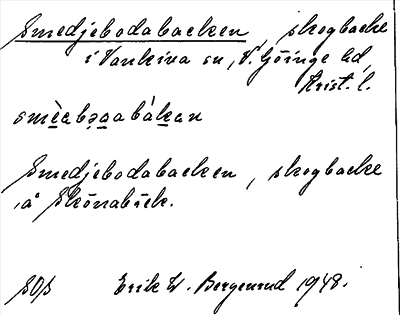 Smedjebodabacken, skogbacke
i Vankiva sn, V. Göinge hd,
Krist. l.
Smedjebodabacken, skogbacke
å Skönabäck.
Erik W. Bergenrud 1948.